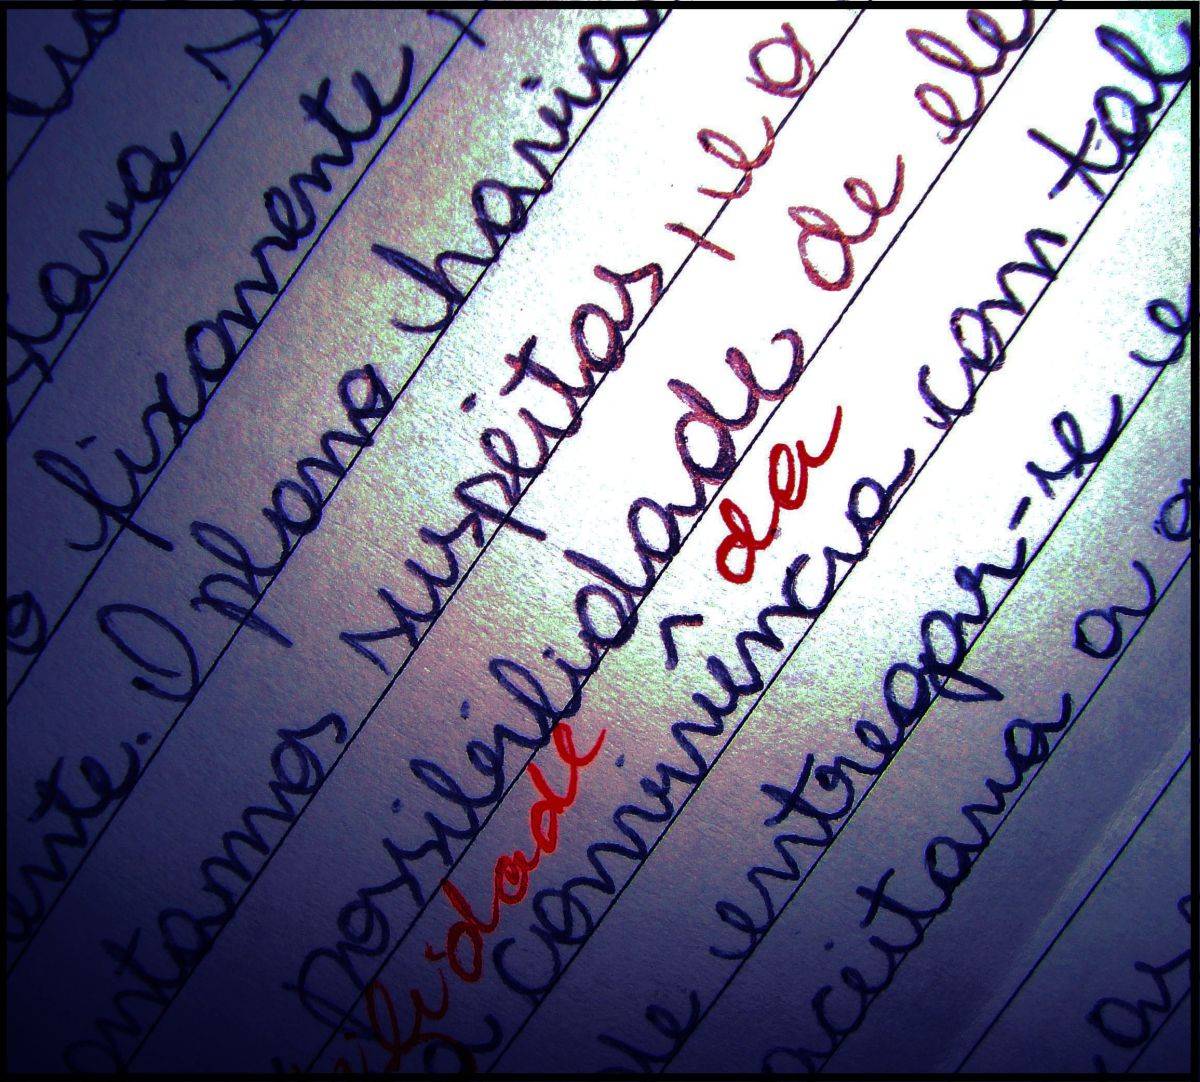 tava
o fixamente
ente. O plano havia
ontamos suspeitas, se a
posibilidade de ele
bilidade da
a convivência com tal
de entregar-se e
aceitava a